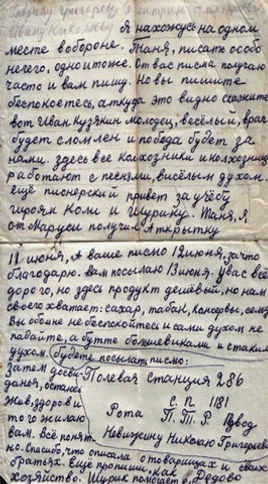 Я нахожусь на одном
месте в обороне. Таня, писать особо
нечего, одно и тоже. От вас письма получаю
часто и вам пишу. Но вы пишите
беспокоетесь, а ткуда это видно скажите
вот Иван Кузякин молодец, весёлый, враг
будет сломлен и победа будет за
нами. Здесь все колхозники и колхозницы
работают с песнями, висёлым духом.
Ещё пионерский привет за учёбу
героям Коли и Шурику. Таня, я
от Маруси получил Аткрытку
11 июня, А ваше письмо 12 июня, за что
благодарю. Вам посылаю 13 июня. У вас всё
дорого, но здесь продукт дешёвый, но нам
своего хватает: сахар, табак, консервы, сельд
Вы обо мне не беспокойтесь и сами духом не
падайте, а бутте большевиками и с таким
духом. Будете посылать письмо:
Затем досви- Полевая станция 286
данья, остаюсь С. П. 1181
жив, здоров и Рота П. Т. Р. Взвод
того желаю
вам. Всё понят- Николаю Григорьеви
но. Спасибо, что описала о товарищах и своих
братьях. Ещё пропиши, как
хозяйство. Шурик помошет в. Дядово